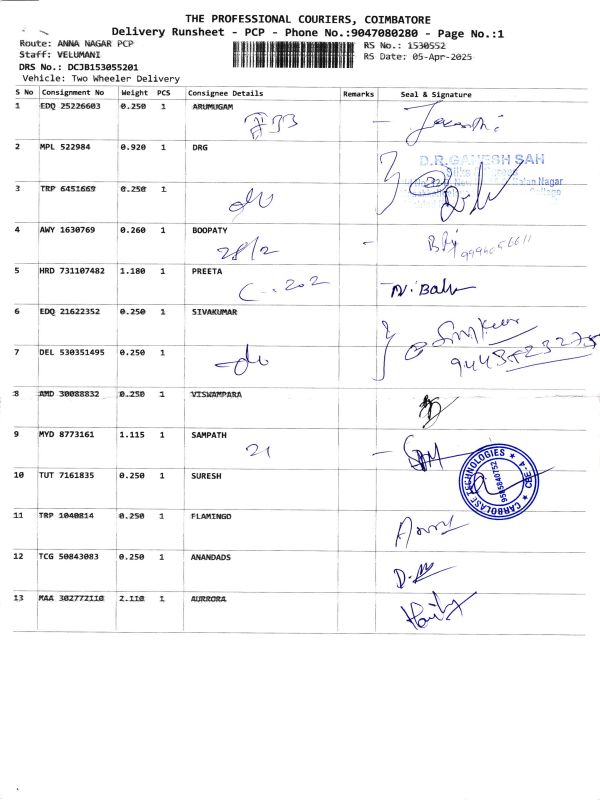 THE PROFESSIONAL COURIERS, COIMBATORE
Delivery Runsheet - PCP - Phone No.:9047080280 - Page No.:1
Route: ANNA NAGAR PCP
RS No.: 1530552
Staff: VELUMANI
RS Date: 05-Apr-2025
DRS No.: DCJB153055201
Vehicle: Two Wheeler Delivery
S No Consignment No Weight PCS Consignee Details Remarks Seal & Signature
1 EDQ 25226603 0.250 1 ARUMUGAM
2 MPL 522984 0.920 1 DRG
D.R.GANESH SAH
3 TRP 6451669 0.250 1
4 AWY 1630769 0.260 1 BOOPATY
28/2
5 HRD 731107482 1.180 1 PREETA
202
N. Balu
6 EDQ 21622352 0.250 1 SIVAKUMAR
7 DEL 530351495 0.250 1
8 AMD 30088832 0.250 1 VISWAMPARA
9 MYD 8773161 1.115 1 SAMPATH
21
10 TUT 7161835 0.250 1 SURESH
CARBOLASE TECHNOLOGIES
CBE-4
11 TRP 1040814 0.250 1 FLAMINGO
12 TCG 50843083 0.250 1 ANANDADS
13 MAA 302772110 2.110 1 AURRORA